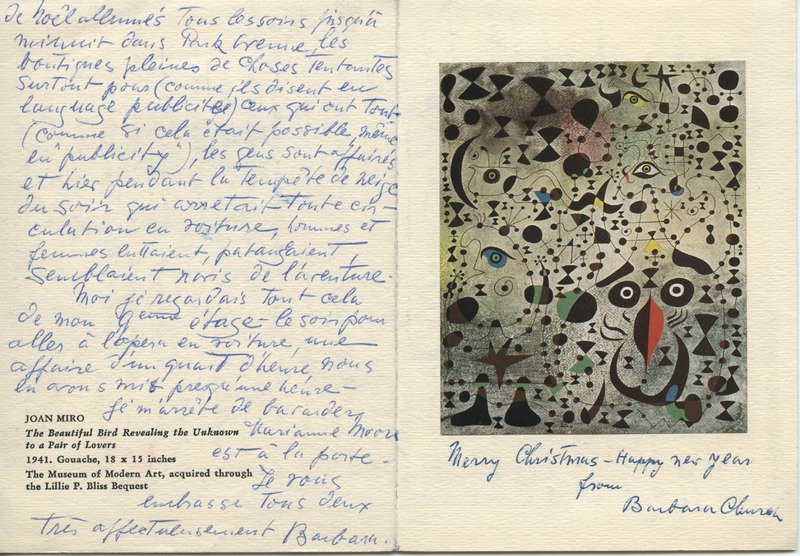 de Noël allumés Tous les soirs jusqu'à
minuit dans Park Avenue, les
boutiques pleines de choses tentantes
surtout pour (comme ils disent en
language publicité) ceux qui ont Tout
(comme si cela était possible, même
en "publicity"), les gens sont affairés
et hier pendant la tempête de neige
du soir qui arretait Toute cir-
culation en voiture, hommes et
femmes luttaient, patangeaient,
semblaient ravis de l'aventure.
Moi je regardais Tout cela
de mon 9eme étage - le soir pour
aller à l'opéra en voiture, une
affaire d'un quart d'heure nous
en avons mis presqu'une heure -
Je m'arrête de bavarder,
Marianne Moore
est à la porte -
Je vous
embrasse Tous deux
Très affectueusement Barbara.
JOAN MIRO
The Beautiful Bird Revealing the Unknown
to a Pair of Lovers
1941. Gouache, 18 x 15 inches
The Museum of Modern Art, acquired through
the Lillie P. Bliss Bequest
Merry Christmas - Happy new year
from
Barbara Church